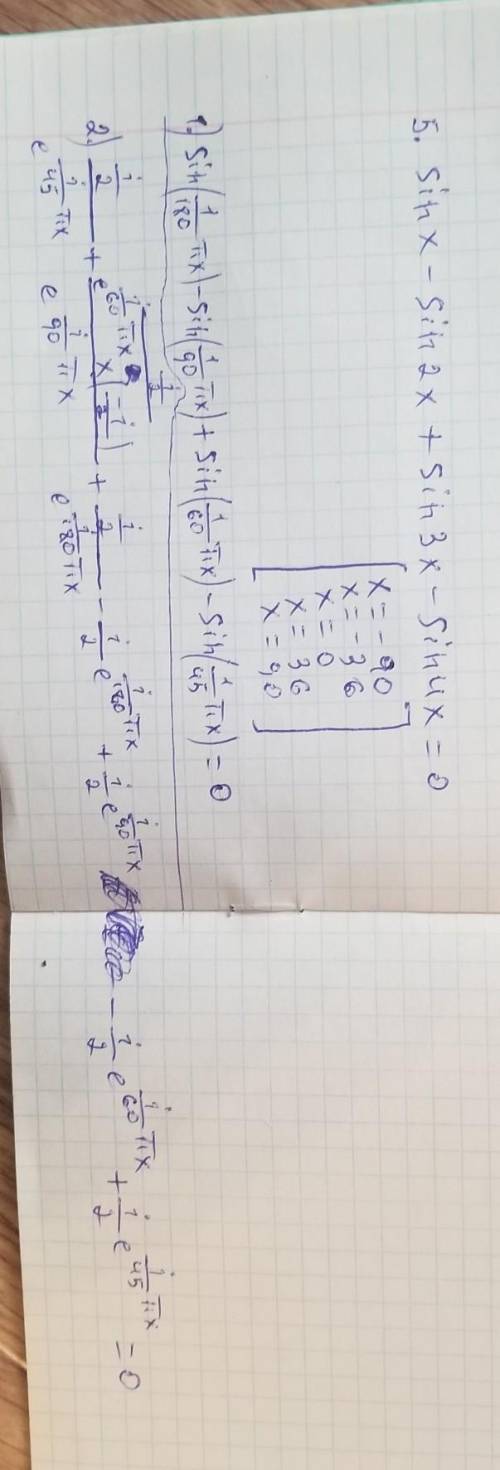 5. Sin x - Sin 2x + Sin 3x - Sin 4x = 0
x = -90
x = -36
x = 0
x = 36
x = 90
1.) Sin(1/180 πx) - Sin(1/90 πx) + Sin(1/60 πx) - Sin(1/45 πx) = 0
2.) i/2 / e^(i/45 πx) + e^(i/60 πx) x(-i/2) / e^(i/90 πx) + i/2 / e^(i/180 πx) - i/2 e^(i/180 πx) + i/2 e^(i/90 πx) - i/2 e^(i/60 πx) + i/2 e^(i/45 πx) = 0